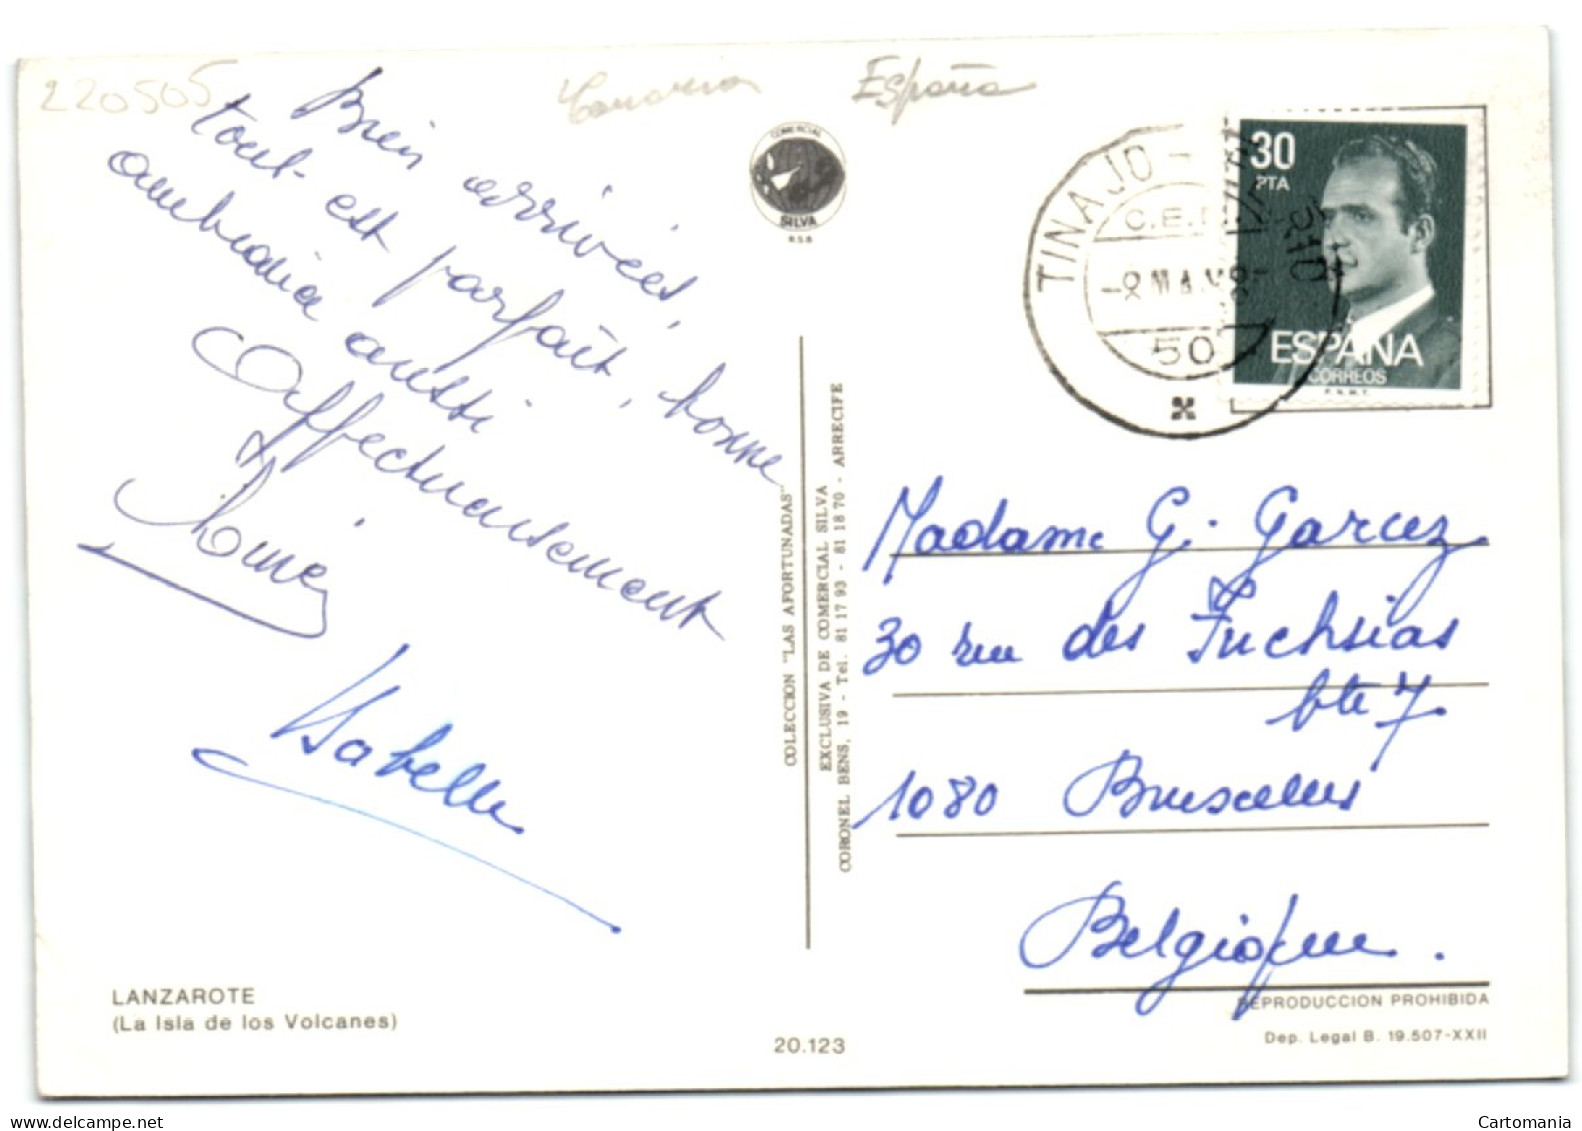 220505
Canaria
España
Bien arrivées,
tout est parfait, bonne
ambiance aussi
Affectueusement
Aimée
Isabelle
COMERCIAL
SILVA
R.S.B
TINAJO -
50
30
PTA
ESPAÑA
CORREOS
F.N.M.T.
COLECCION "LAS AFORTUNADAS"
EXCLUSIVA DE COMERCIAL SILVA
CORONEL BENS, 19 - Tel. 81 17 93 - 81 18 70 - ARRECIFE
Madame G. Garcez
30 rue des Fuchsias
bte 7
1080 Bruxelles
Belgique.
LANZAROTE
(La Isla de los Volcanes)
20.123
REPRODUCCION PROHIBIDA
Dep. Legal B. 19.507-XXII
www.delcampe.net
Cartomania